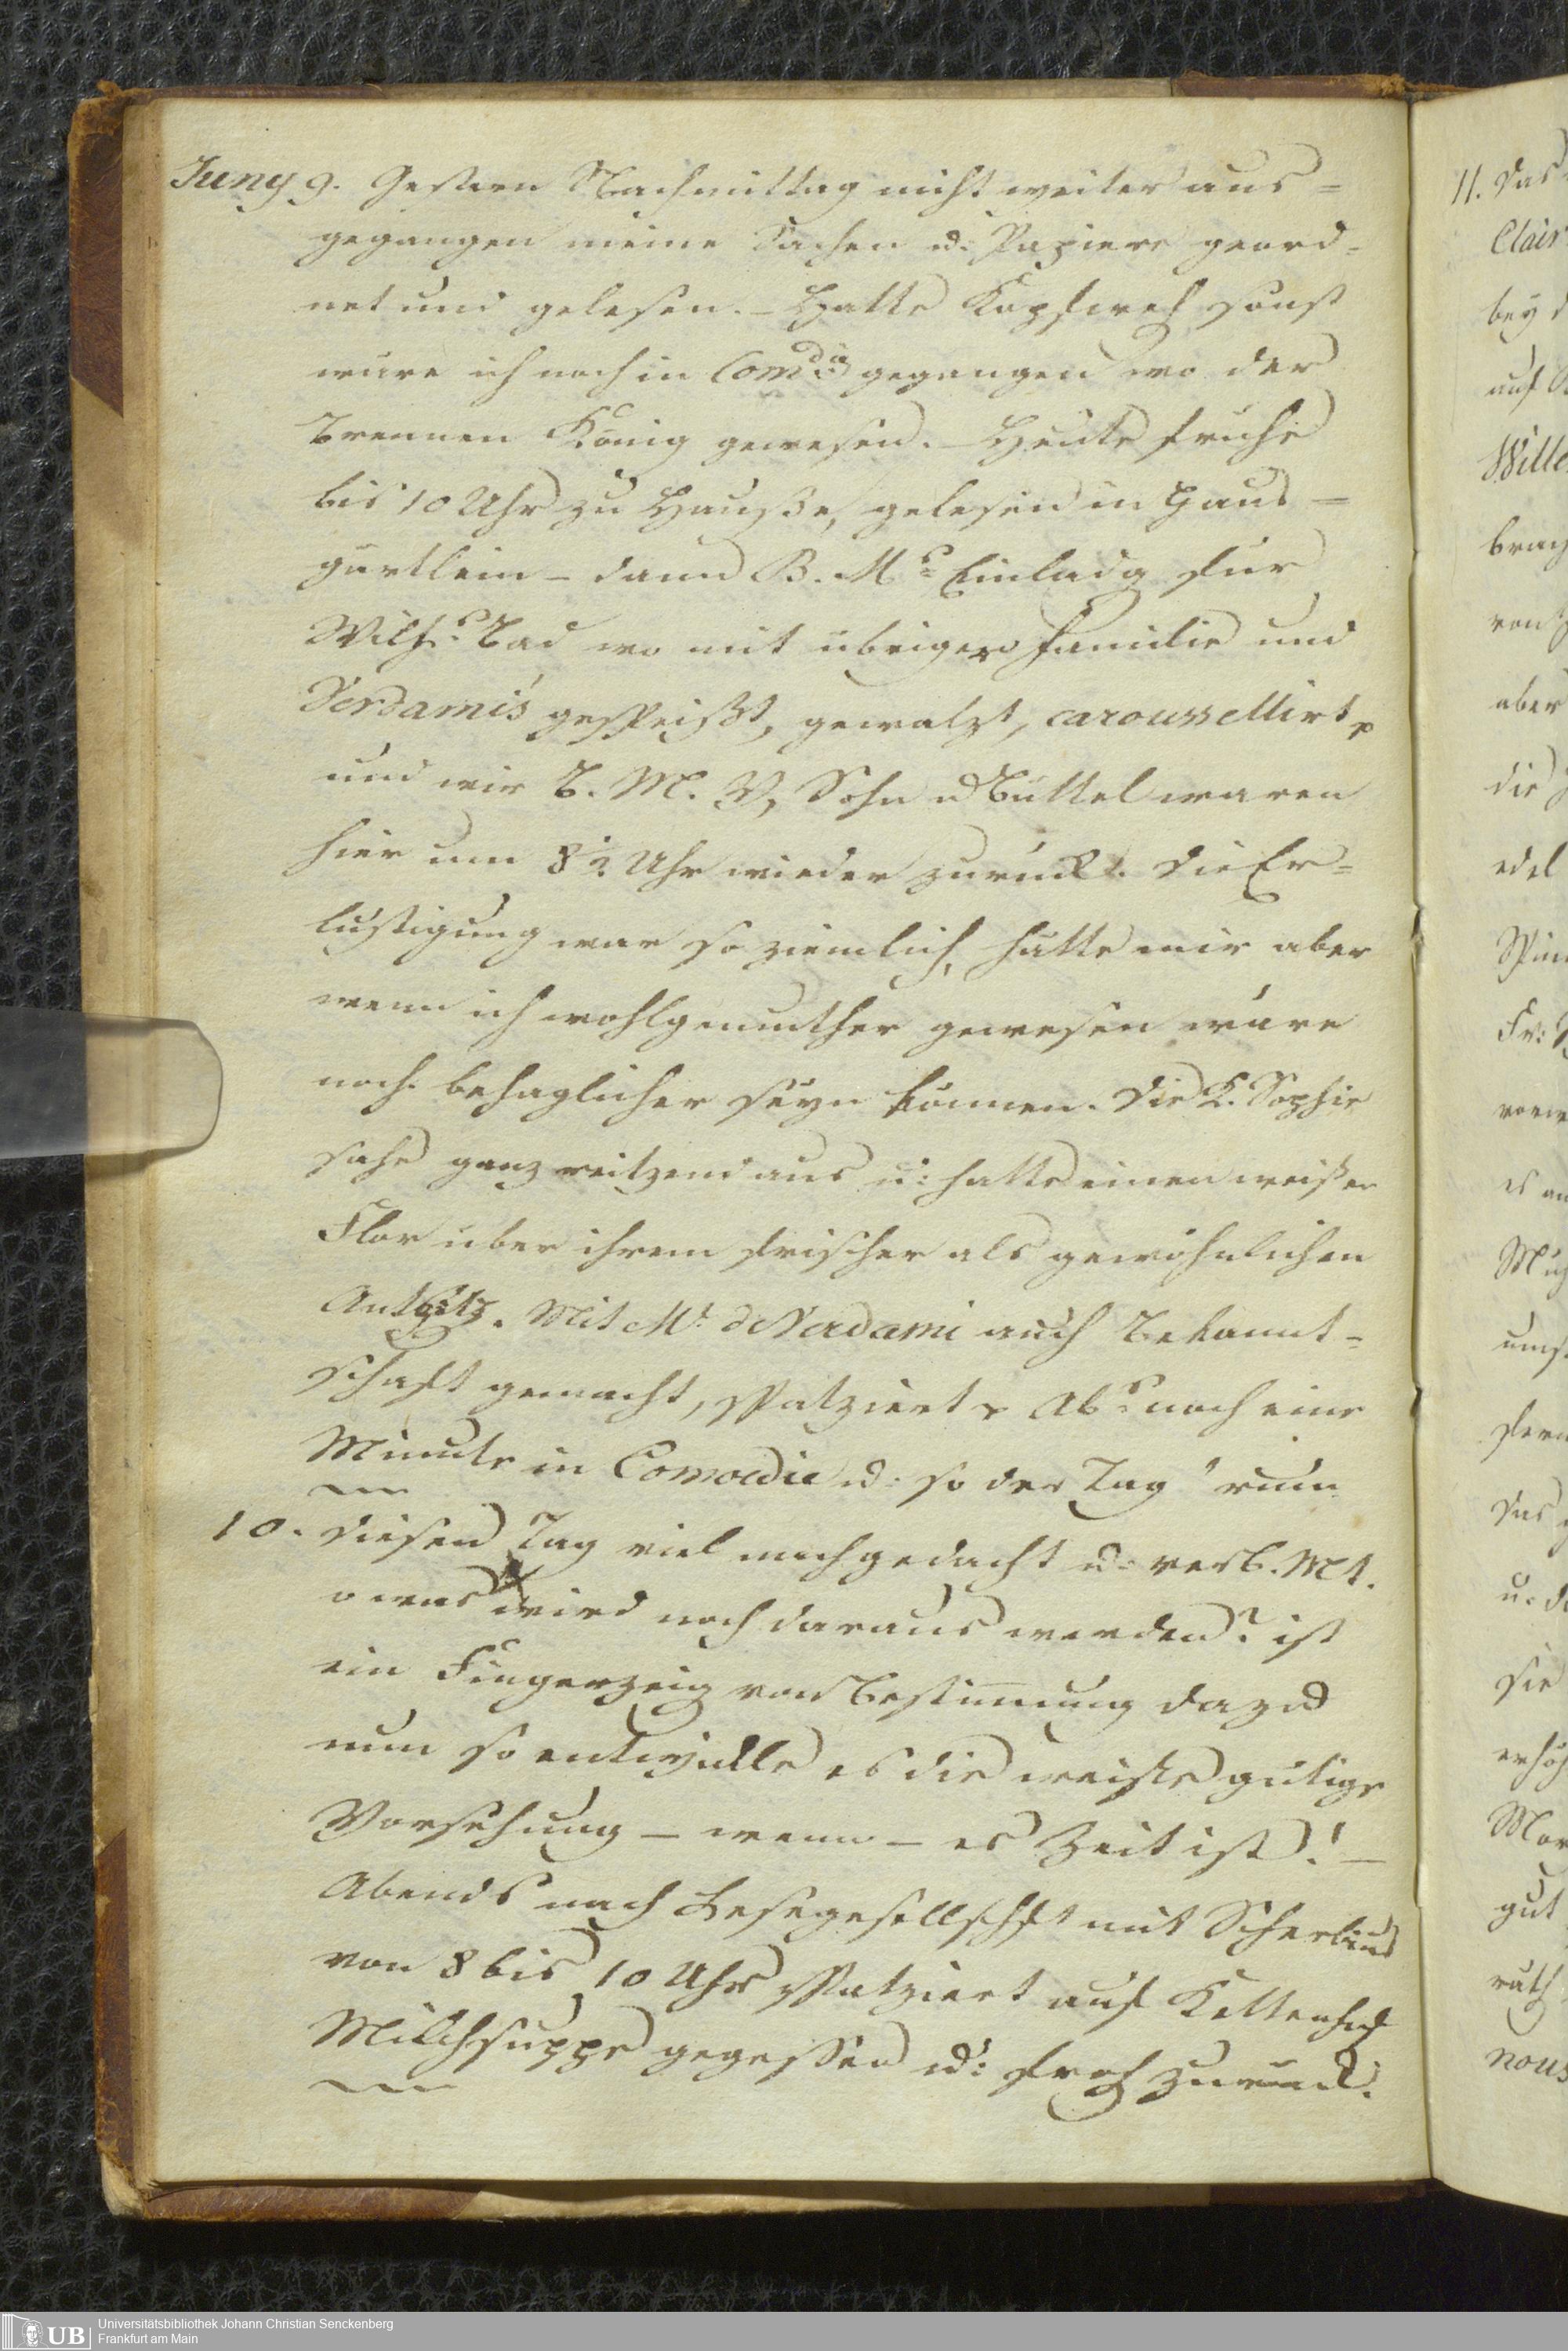 Juny 9. Gestern Nachmittag nicht weiter aus=
gegangen meine Sachen u: Papiere geord=
net und gelesen. – Hatte Kopfweh sonst
wäre ich noch in Comdie gegangen wo der
Brennen König gewesen. – Heute frühe
bis 10 Uhr zu Hauße, gelesen in Haus=
gärtlein – dann B. Ms Einladg für
Wilhs Bad wo mit übriger Familie und
Verdami's gespeißt, gewalzt, caroussellirt
und wir B. M. V, Sohn u Büttel waren
hier um 8½ Uhr wieder zurück. Die Er=
lustigung war so ziemlich, hätte mir aber
wenn ich wohlgemuther gewesen wäre
noch behaglicher seyn können. Die K. Sophie
sahe ganz reitzend aus u: hatte einen weißen
Flor über ihrem frischer als gewöhnlichen
Antlitz. Mit Mr d Verdami auch Bekannt=
schaft gemacht, spatziert Abs noch eine
Minute in Comoedie u: so der Tag 'rum
10. Diesen Tag viel nachgedacht u: verb. Mt.
o was wird noch daraus werden? ist
ein Fingerzeig von Bestimung dazu
nun so entwickle es die weiße gütige
Vorsehung – wenn – es Zeit ist! –
Abends nach Lesegesellschft mit Scherbius
von 8 bis 10 Uhr spatziert auf Kettenhof
Milchsuppe gegessen u: froh zurück.
11. Das
Clair
bey d
auf
Wille
brach
von
aber
die
edel
Spin
Fr:
es an
ums
fern
Das
u. d
sie
erhöh
Mor
gut
rath
nous
Universitätsbibliothek Johann Christian Senckenberg
Frankfurt am Main
UB